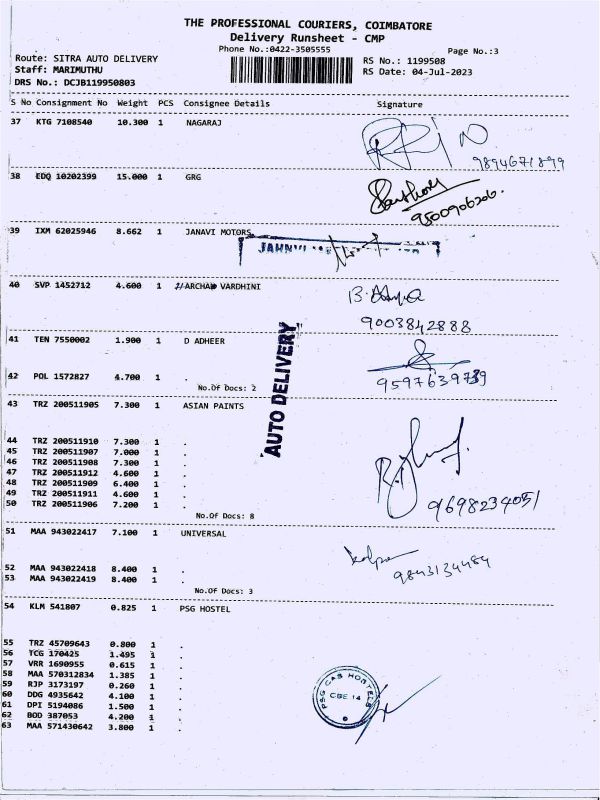 THE PROFESSIONAL COURIERS, COIMBATORE
Delivery Runsheet - CMP
Phone No.:0422-3505555
Page No.:3
Route: SITRA AUTO DELIVERY
RS No.: 1199508
Staff: MARIMUTHU
RS Date: 04-Jul-2023
DRS No.: DCJB119950803
S No Consignment No Weight PCS Consignee Details Signature
37 KTG 7108540 10.300 1 NAGARAJ
9894671899
38 EDQ 10202399 15.000 1 GRG
9500906206.
39 IXM 62025946 8.662 1 JANAVI MOTORS
JAHNVI
40 SVP 1452712 4.600 1 ARCHAN VARDHINI
9003842888
41 TEN 7550002 1.900 1 D ADHEER
AUTO DELIVERY
42 POL 1572827 4.700 1 .
No.Of Docs: 2
43 TRZ 200511905 7.300 1 ASIAN PAINTS
44 TRZ 200511910 7.300 1 .
45 TRZ 200511907 7.000 1 .
46 TRZ 200511908 7.300 1 .
47 TRZ 200511912 4.600 1 .
48 TRZ 200511909 6.400 1 .
49 TRZ 200511911 4.600 1 .
50 TRZ 200511906 7.200 1 .
9698234051
No.Of Docs: 8
51 MAA 943022417 7.100 1 UNIVERSAL
52 MAA 943022418 8.400 1 .
53 MAA 943022419 8.400 1 .
9843134484
No.Of Docs: 3
54 KLM 541807 0.825 1 PSG HOSTEL
55 TRZ 45709643 0.800 1 .
56 TCG 170425 1.495 1 .
57 VRR 1690955 0.615 1 .
58 MAA 570312834 1.385 1 .
59 RJP 3173197 0.260 1 .
60 DDG 4935642 4.100 1 .
61 DPI 5194086 1.500 1 .
62 BOD 387053 4.200 1 .
63 MAA 571430642 3.800 1 .
PSG CAS HOSTELS
CBE 14